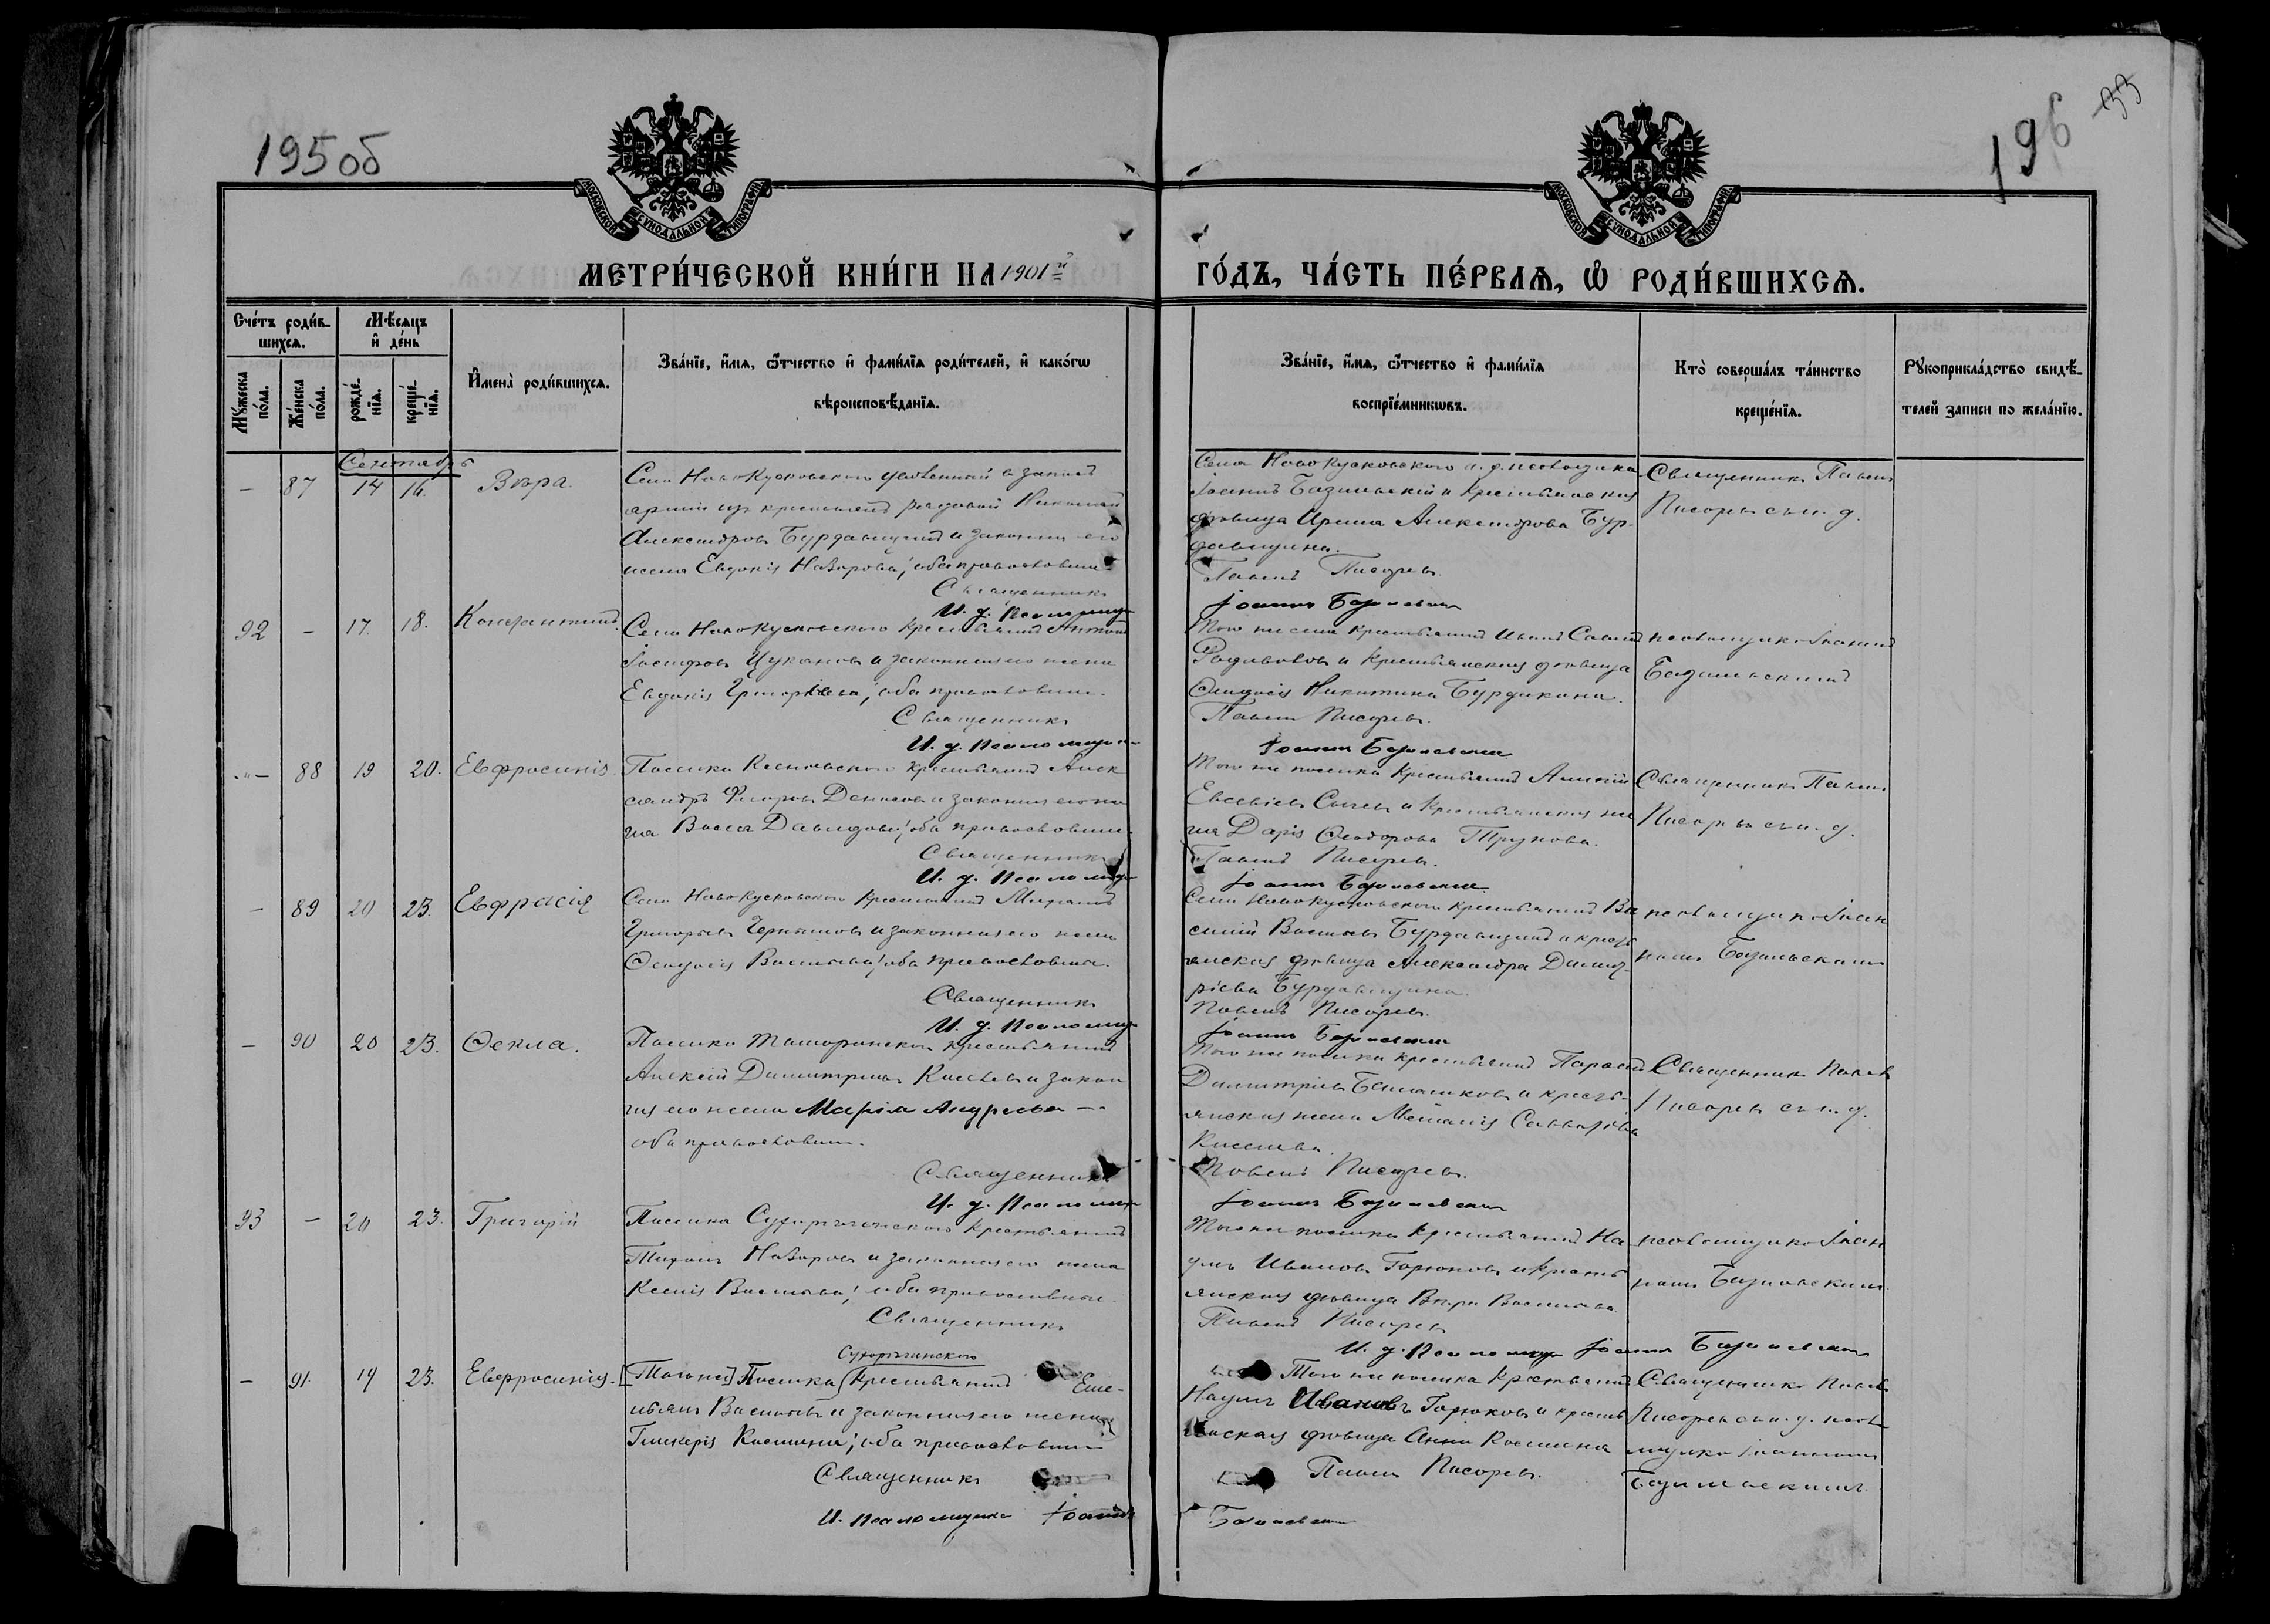 195 об
196
33
МОСКОВСКОЙ СѴНОДАЛЬНОЙ ТИПОГРАФІИ
МОСКОВСКОЙ СѴНОДАЛЬНОЙ ТИПОГРАФІИ
МЕТРИ́ЧЕСКОЙ КНИ́ГИ НА 1901й ГО́ДЪ, ЧА́СТЬ ПЕ́РВАѦ, Ѡ҆ РОДИ́ВШИХСѦ.
Сче́тъ роди́в-
шихсѧ.
Мꙋ́жеска по́ла.
Же́нска по́ла.
Мѣ́сяцъ и҆ де́нь
рожде́-нїѧ.
креще́-нїѧ.
И҆мена̀ роди́вшихсѧ.
Зва́нїе, и҆́мѧ, ѻ҆́тчество и҆ фами́лїѧ роди́телей, и҆ како́гѡ
вѣроисповѣ́данїѧ.
Зва́нїе, и҆́мѧ, ѻ҆́тчество и҆ фами́лїѧ
воспрїе́мникѡвъ.
Кто̀ соверша́лъ та́инство
креще́нїѧ.
Рꙋкоприкла́дство свидѣ́-
телей записи по жела́нїю.
Сентябрь
— 87 14 16. Вѣра.
Села Ново Кусковскаго уволенный в запасъ
арміи изъ крестьянъ рядовой Николай
Александровъ Бурдавицынъ и законная его
жена Евдокія Назарова; оба православные
Священникъ
И. д. Псаломщ
Села Ново Кусковскаго и. д. псаломщика
Іоаннъ Базилевскій и крестьянская
дѣвица Ирина Александрова Бур-
давицына.
Павелъ Писаревъ
Іоаннъ Базилевскій
Священникъ Павелъ
Писаревъ съ и. д.
92 — 17. 18. Константинъ.
Села Ново Кусковскаго крестьянинъ Антонъ
Іосифовъ Цукановъ и законная его жена
Евдокія Григорьева; оба православные.
Священникъ
И. д. Псаломщи
Того же села крестьянинъ Иванъ
и крестьянская дѣвица
Ѳеодосія Никитина Бурдакина.
Павелъ Писаревъ.
Іоаннъ Базилевскій
псаломщика Іоаннъ
Базилевскимъ
— 88 19 20. Евфросинія
Поселка крестьянинъ Алек
сандръ Денисовъ и законная его же
на Васса Давидова; оба православные.
Священникъ
И. д. Псаломщ
Того же поселка крестьянинъ Алексій
Евсевіевъ и крестьянская же
на Дарія Ѳеодорова Трунова.
Павелъ Писаревъ.
Іоаннъ Базилевскій
Священникъ Павелъ
Писаревъ съ и. д.
— 89 20 23. Евфрасія
Села Ново Кусковскаго крестьянинъ Михаилъ
Григорьевъ Черныховъ и законная его жена
Ѳеодосія Васильева; оба православные.
Священникъ
И. д. Псаломщ
Села Ново Кусковскаго крестьянинъ Ва
силій Васильевъ Бурдавицынъ и кресть
янская дѣвица Александра Димит-
ріева Бурдавицына.
Павелъ Писаревъ.
Іоаннъ Базилевскій
псаломщико Іоан
номъ Базилевскимъ
— 90 20 23. Ѳекла.
Поселка крестьянинъ
Алексій Димитріевъ Киселевъ и закон
ная его жена Марія Андреева —
оба православные.
Священникъ
И. д. Псаломщ
Того же поселка крестьянинъ
Димитріевъ и кресть-
янская жена Меланія
Киселева.
Павелъ Писаревъ.
Іоаннъ Базилевскій
Священникъ Павелъ
Писаревъ съ и. д.
93 — 20 23. Григорій
Поселка крестьянинъ
Назаровъ и законная его жена
Ксенія Васильева; оба православные.
Священникъ
Того же поселка крестьянинъ На
умъ Ивановъ Горюновъ и кресть
янская дѣвица Вѣра Васильева
Павелъ Писаревъ
И. д. Псаломщ Іоаннъ Базилевскій
псаломщико Іоан
номъ Базилевскимъ.
— 91. 19 23. Евфросинія.
[Того же] Поселка крестьянинъ Еме-
льянъ Васильевъ и законная его жена
Гликерія Космина; оба православные
Священникъ
И. Псаломщика Іоаннъ
Того же поселка крестьянинъ
Наумъ Ивановъ Горюновъ и кресть
янская дѣвица Анна Космина
Павелъ Писаревъ.
Базилевскій
Священникъ Павелъ
Писаревъ съ и. д. псало
мщико Іоанномъ
Базилевскимъ.